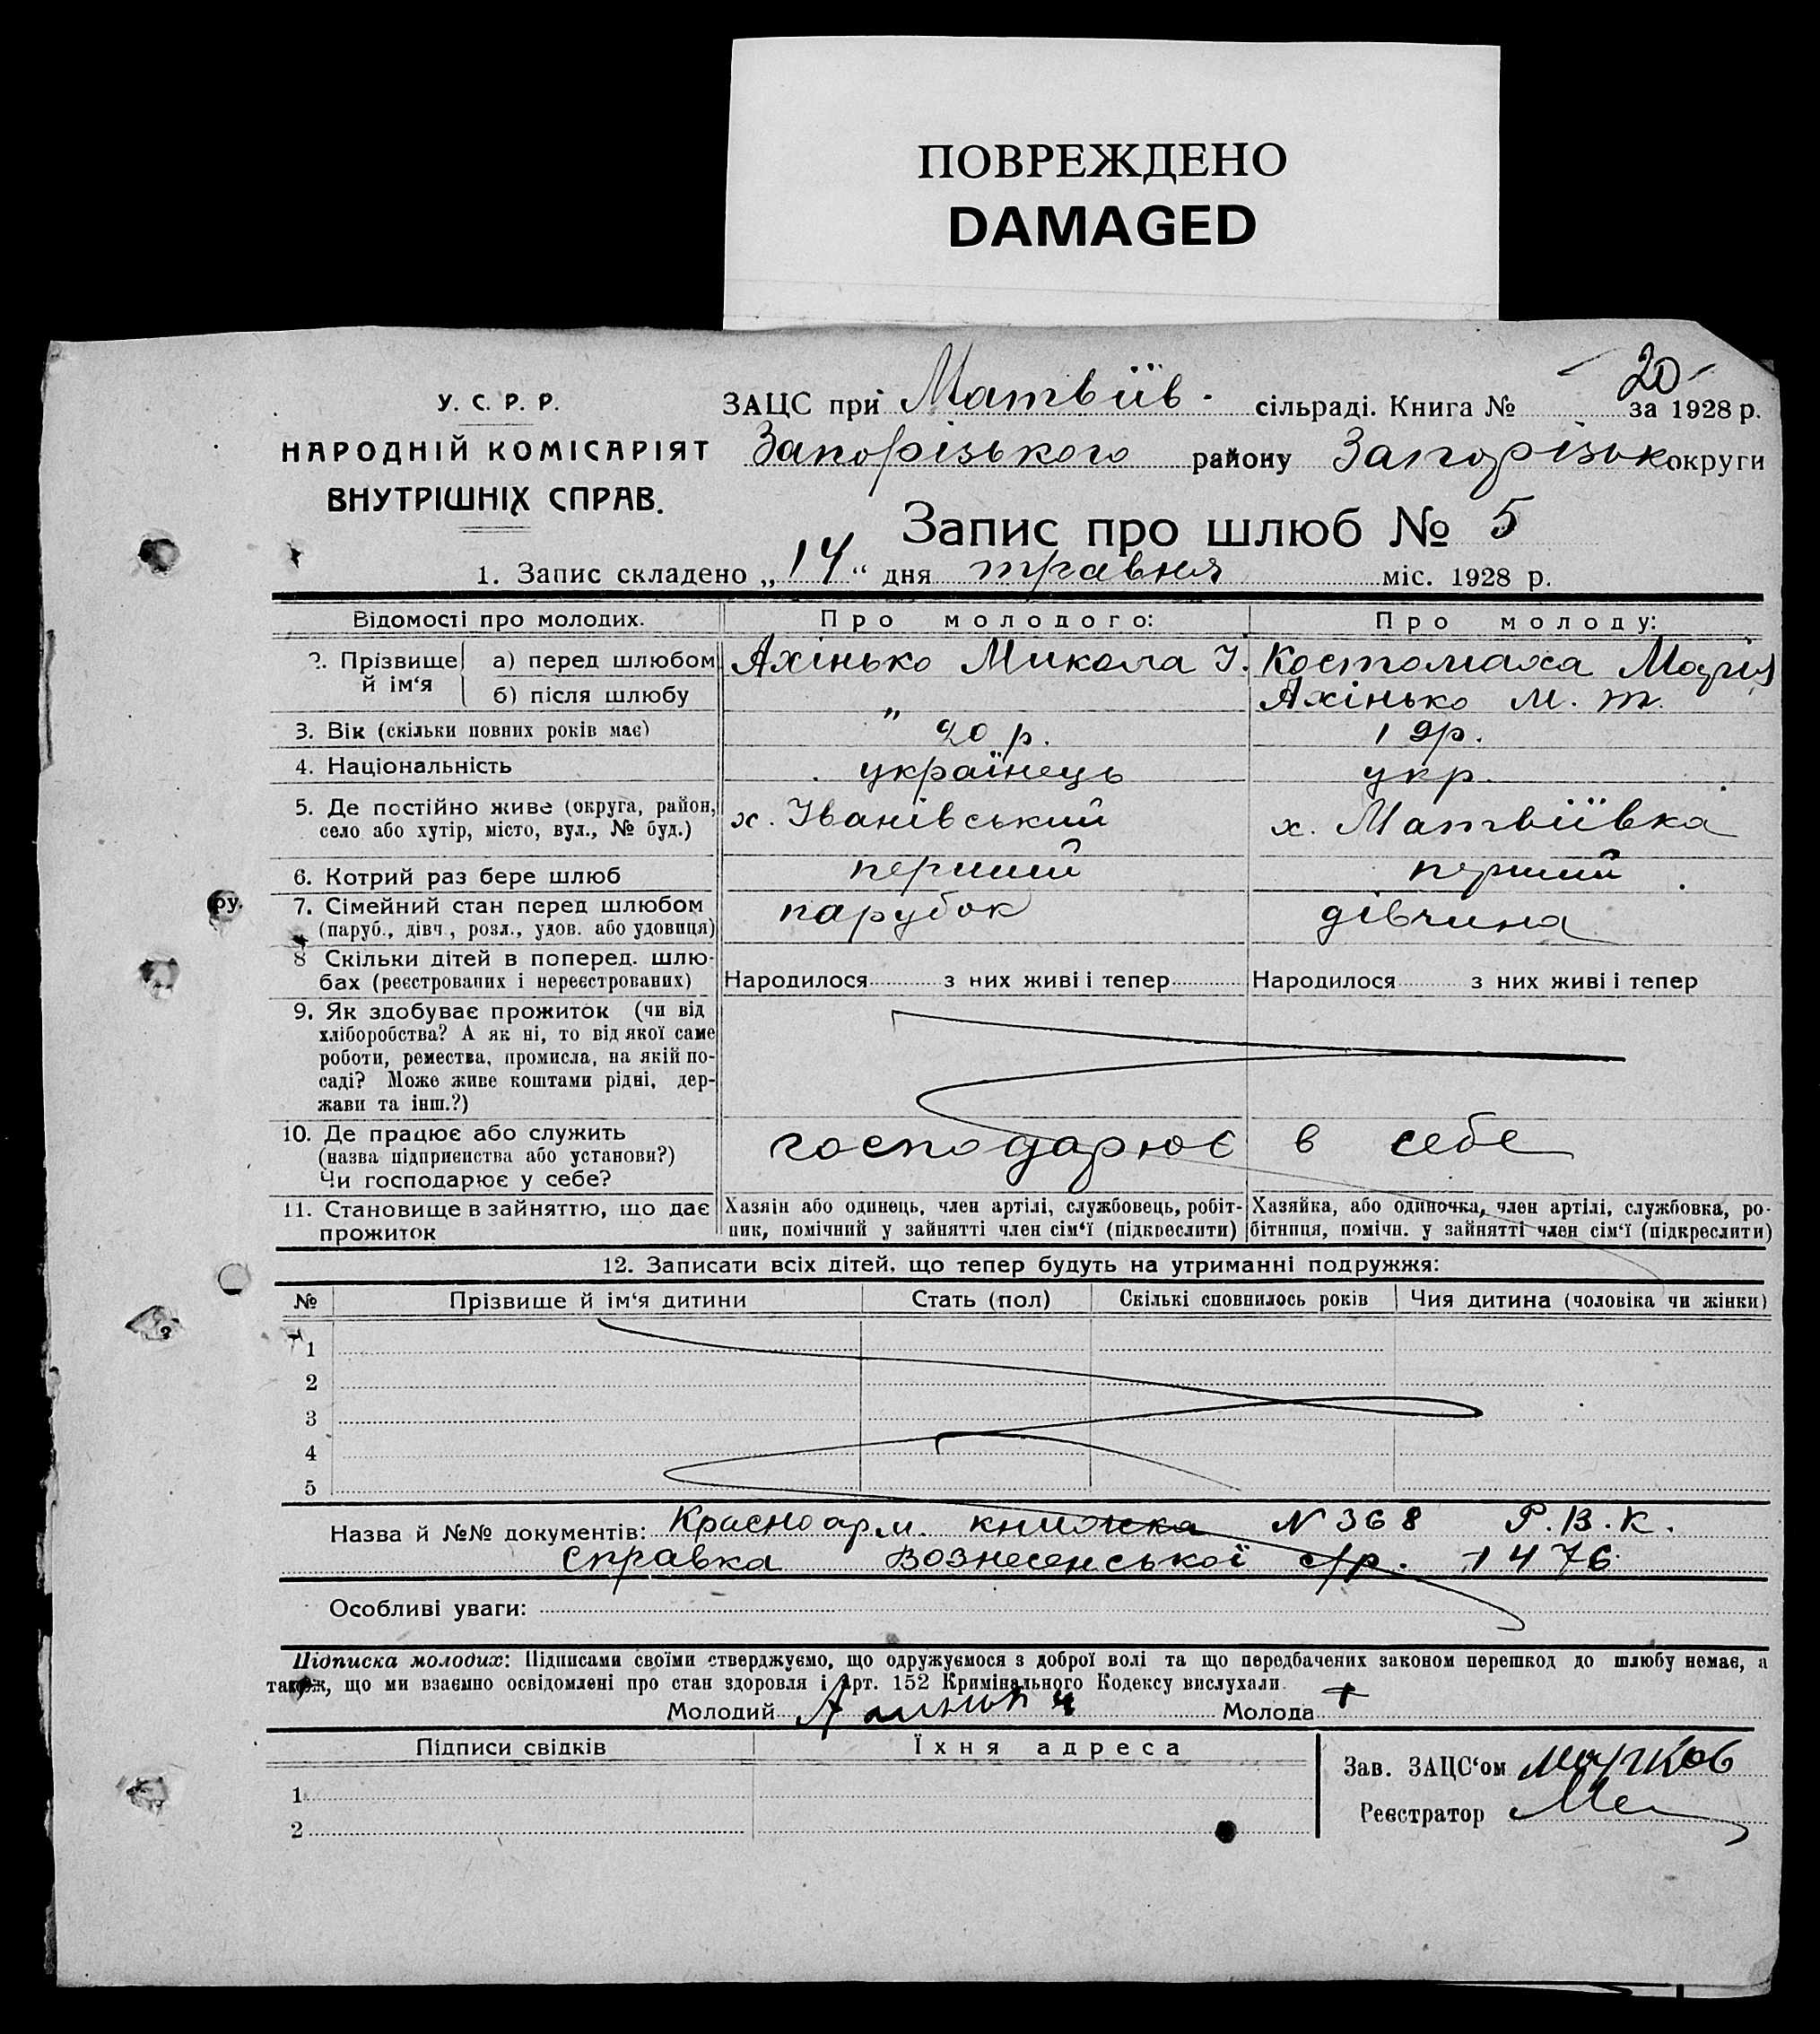 ПОВРЕЖДЕНО
DAMAGED
-20-
У. С. Р. Р.
НАРОДНІЙ КОМІСАРІЯТ
ВНУТРІШНІХ СПРАВ.
ЗАЦС при Матвіїв. сільраді. Книга № за 1928 р.
Запорізького району Запорізьк округи
Запис про шлюб № 5
1. Запис складено „14“ дня травня міс. 1928 р.
Відомості про молодих. Про молодого: Про молоду:
2. Прізвище й ім‘я а) перед шлюбом Ахінько Микола І. Костомаха Марія
б) після шлюбу " Ахінько М. т.
3. Вік (скільки повних років має) 20 р. 19р.
4. Національність українець укр.
5. Де постійно живе (округа, район, х. Іванівський х. Матвіївка
село або хутір, місто, вул., № буд.)
6. Котрий раз бере шлюб перший перший
ру.
7. Сімейний стан перед шлюбом парубок дівчина
(паруб., дівч., розл., удов. або удовиця)
8 Скільки дітей в поперед. шлю-
бах (реєстрованих і нереєстрованих) Народилося з них живі і тепер Народилося з них живі і тепер
9. Як здобуває прожиток (чи від
хліборобства? А як ні, то від якої саме
роботи, ремества, промисла, на якій по-
саді? Може живе коштами рідні, дер-
жави та інш.?)
10. Де працює або служить господарює в себе
(назва підприєнства або установи?)
Чи господарює у себе?
11. Становище в зайняттю, що дає Хазяїн або одинець, член артілі, службовець, робіт- Хазяйка, або одиночка, член артілі, службовка, ро-
прожиток ник, помічний у зайнятті член сім‘ї (підкреслити) бітниця, помічн. у зайнятті член сім‘ї (підкреслити)
12. Записати всіх дітей, що тепер будуть на утриманні подружжя:
№ Прізвище й ім‘я дитини Стать (пол) Скількі сповнилось років Чия дитина (чоловіка чи жінки)
1
2
3
4
5
Назва й №№ документів: Красноарм. книжка N 368 Р.В.К.
Справка Вознесенської с/р. 1476.
Особливі уваги:
Підписка молодих: Підписами своїми стверджуємо, що одружуємося з доброї волі та що передбачених законом перешкод до шлюбу немає, а
також, що ми взаємно освідомлені про стан здоровля і Арт. 152 Кримінального Кодексу вислухали.
Молодий Молода +
Підписи свідків Їхня адреса
Зав. ЗАЦС‘ом Марков
1
Реєстратор
2